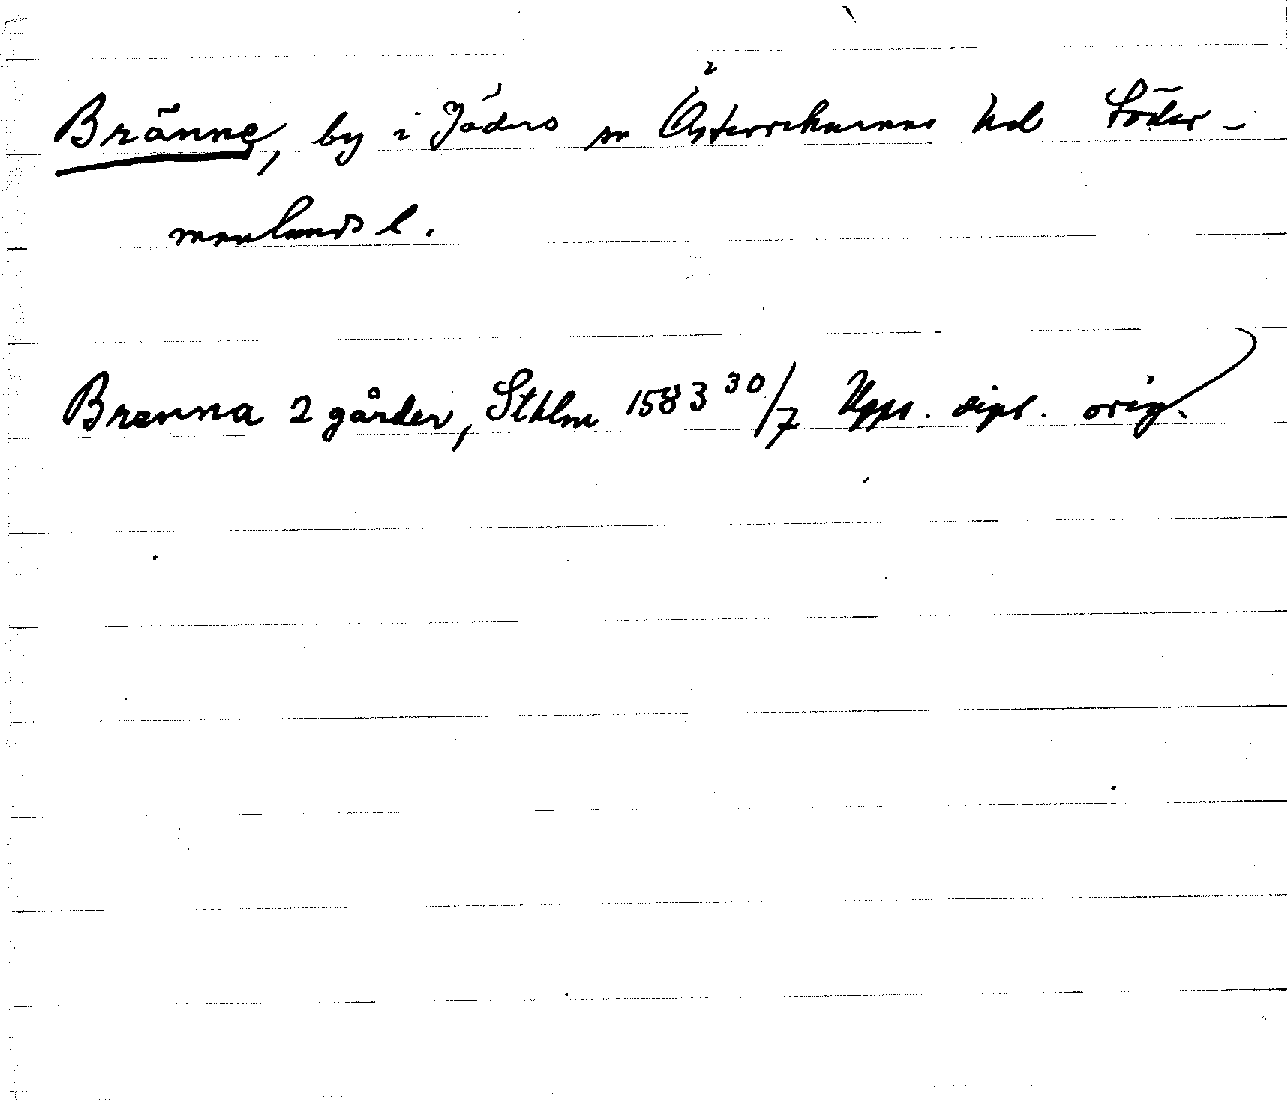 Bränne, by i Jäders sn Österrekarne hd Söder-
manlands l.
Brenna 2 gårder, Sthlm 1583 30/7 Upps. dipl. orig.